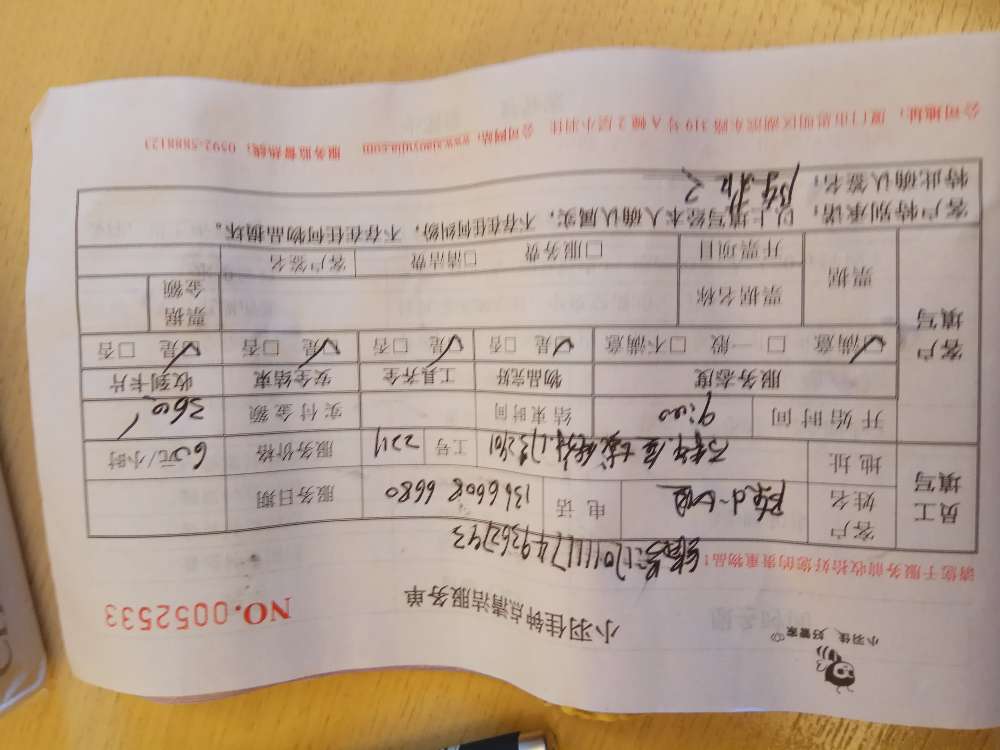 小羽佳 好管家
小羽佳钟点清洁服务单
NO.0052533
请您于服务前收拾好您的贵重物品!
员工填写
客户姓名
电话 136 6608 6680
服务日期
地址
工号 224
服务价格 60元/小时
客户填写
开始时间 9:00
结束时间
实付金额 360
服务态度 物品完好 工具齐全 安全结束 收到卡片
☑满意 □一般 □不满意 ☑是 □否 ☑是 □否 ☑是 □否 ☑是 □否
票据 票据名称 票据金额
开票项目 □服务费 □清洁费 客户签名
客户特别承诺:以上填写经本人确认属实,不存在任何纠纷,不存在任何物品损坏。
特此确认签名:
公司地址:厦门市思明区湖滨东路319号A幢2层小羽佳 公司网站:www.xiaoyujia.com 服务监督热线:0592-5888123